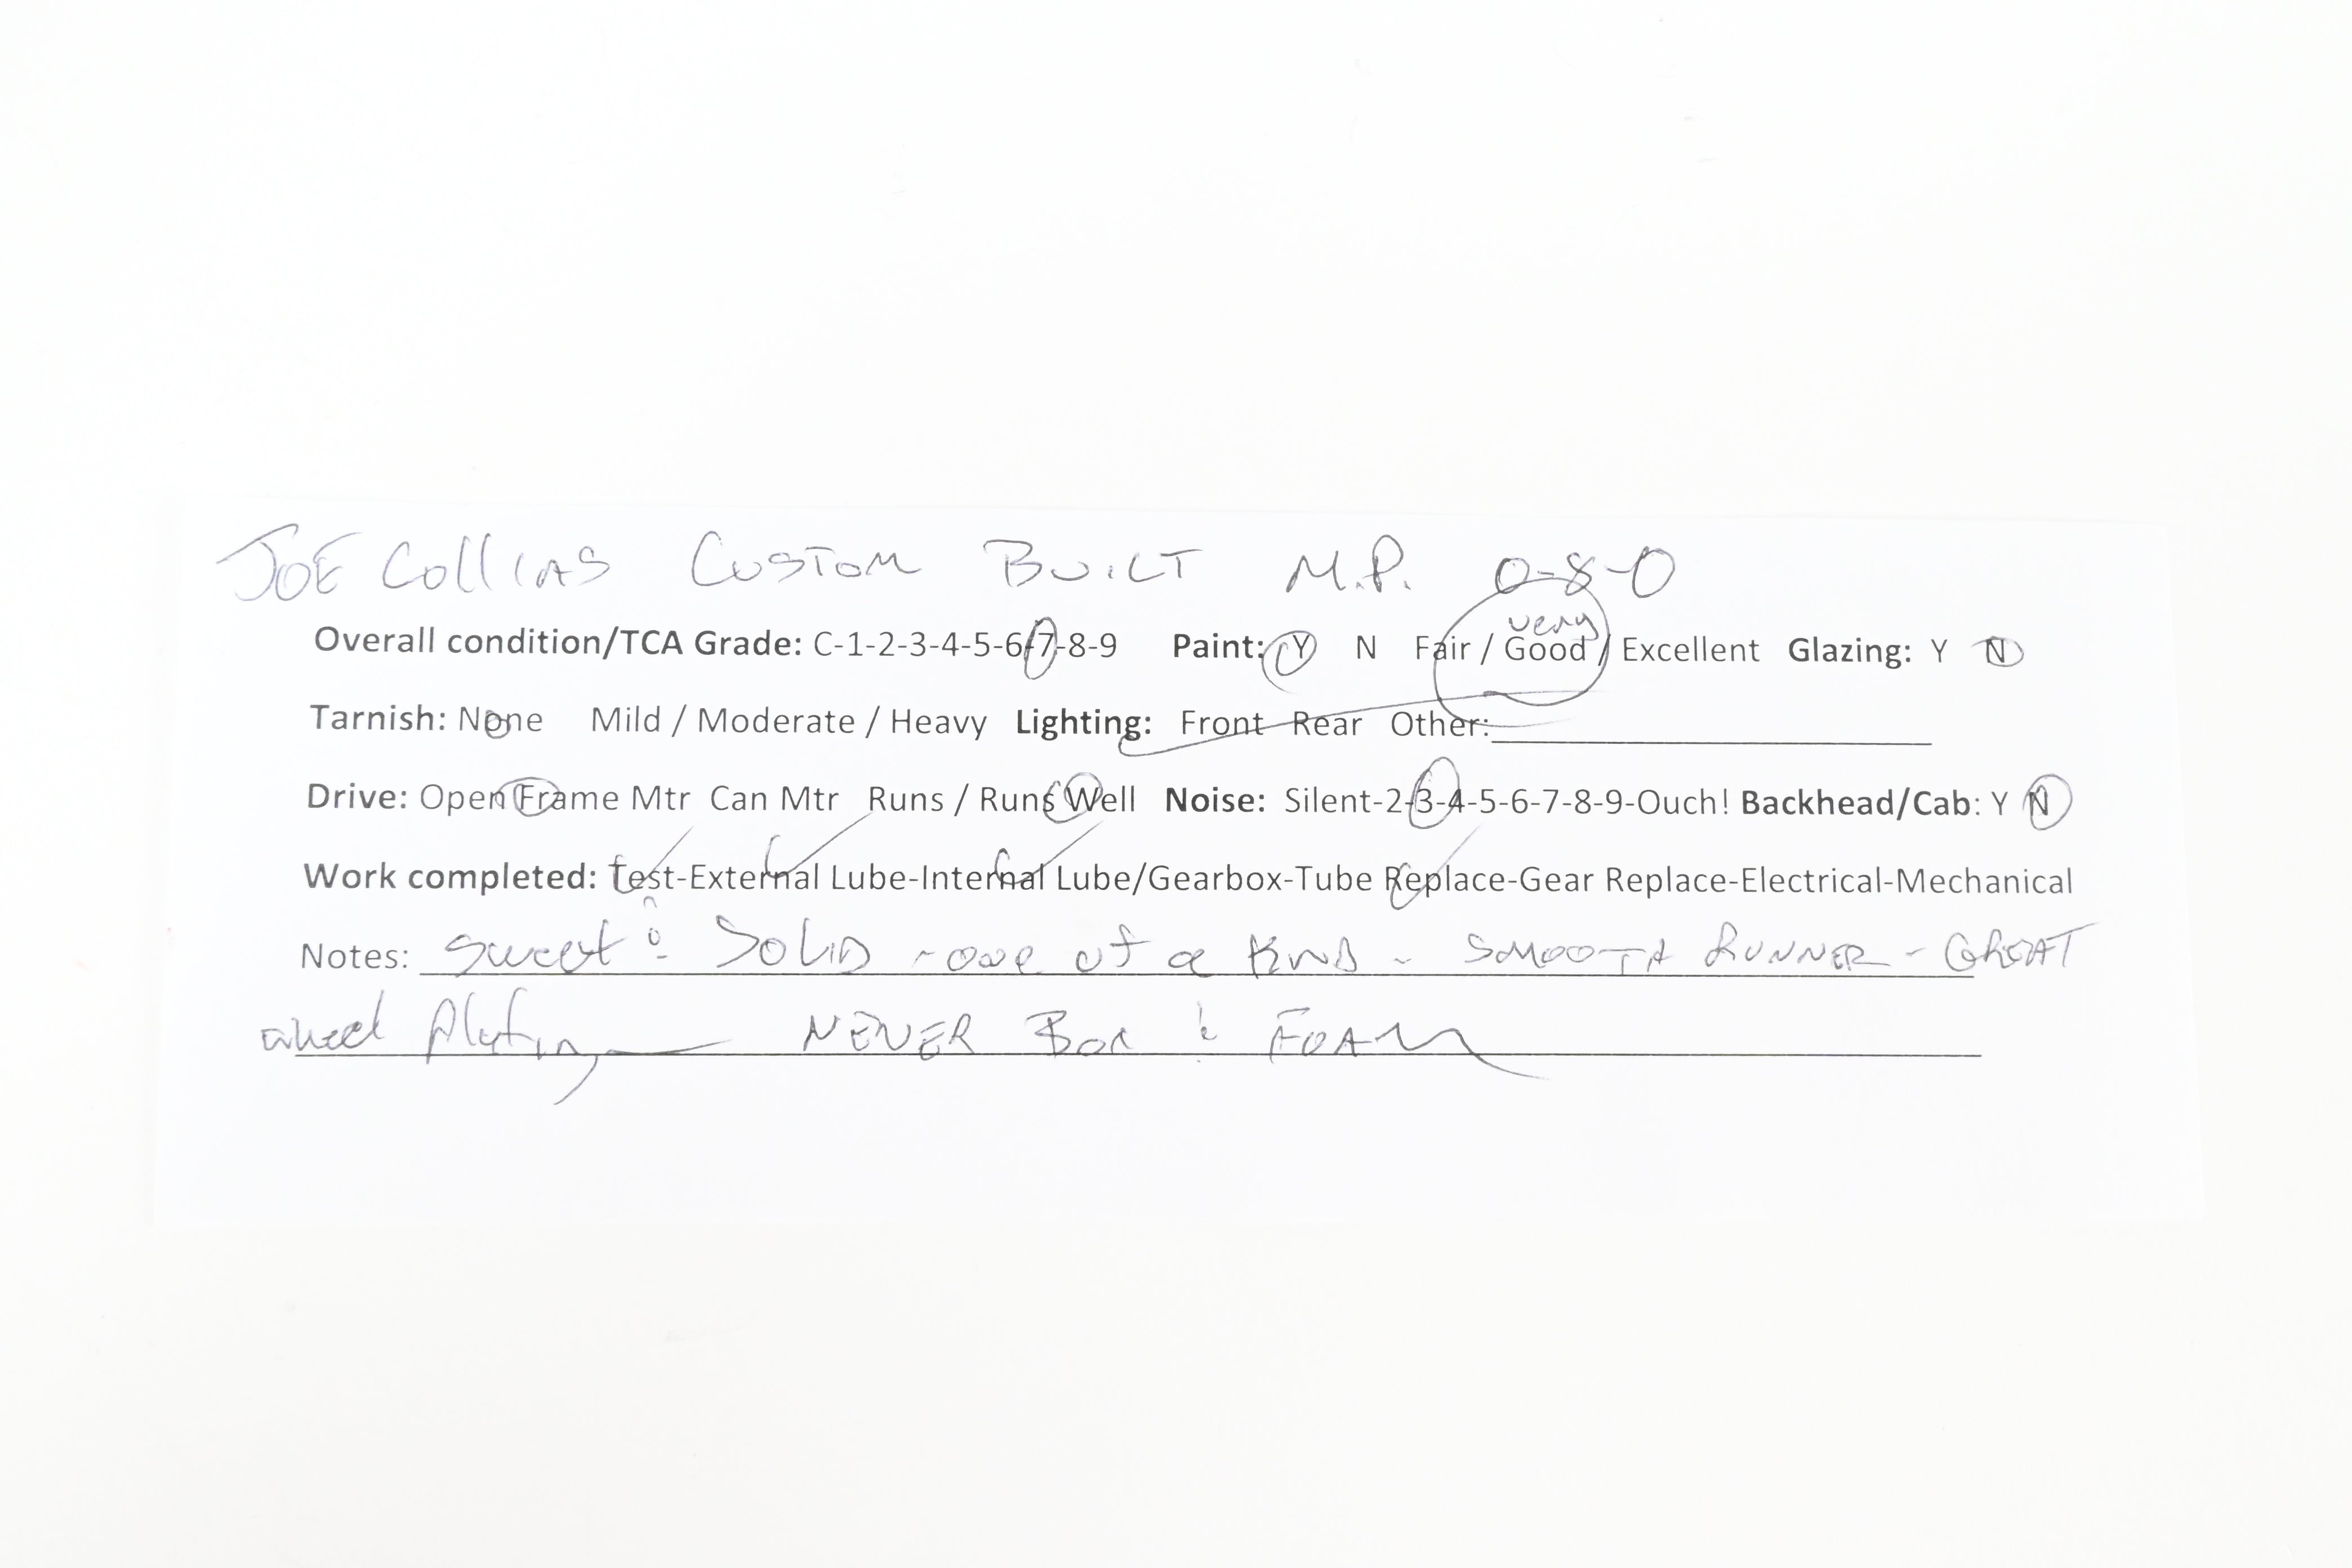 JOE Collins Custom Built M.P. 0-8-0
very
Overall condition/TCA Grade: C-1-2-3-4-5-6-7-8-9 Paint: Y N Fair / Good / Excellent Glazing: Y N
Tarnish: None Mild / Moderate / Heavy Lighting: Front Rear Other:
Drive: Open Frame Mtr Can Mtr Runs / Runs Well Noise: Silent-2-3-4-5-6-7-8-9-Ouch! Backhead/Cab: Y N
Work completed: Test-External Lube-Internal Lube/Gearbox-Tube Replace-Gear Replace-Electrical-Mechanical
Notes: Sweet & Solid - one of a Kind - Smooth RUNNER - GREAT
wheel Plating NEWER Box & FOAM